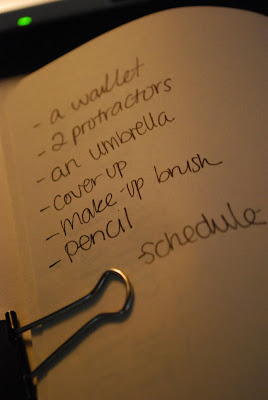 - a wallet
- 2 protractors
- an umbrella
- cover up
- make-up brush
- pencil
-schedule-